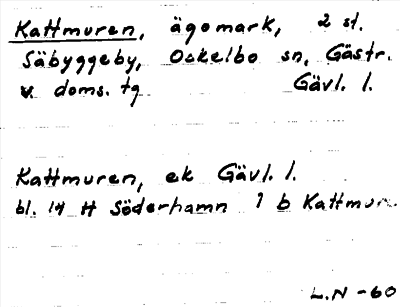 Kattmuren, ägomark, 2 st.
Säbyggeby, Ockelbo sn, Gästr.
v. doms. tg Gävl. l.
Kattmuren, ek Gävl. l.
bl. 14 H Söderhamn 1 b Kattmur.
L.N -60